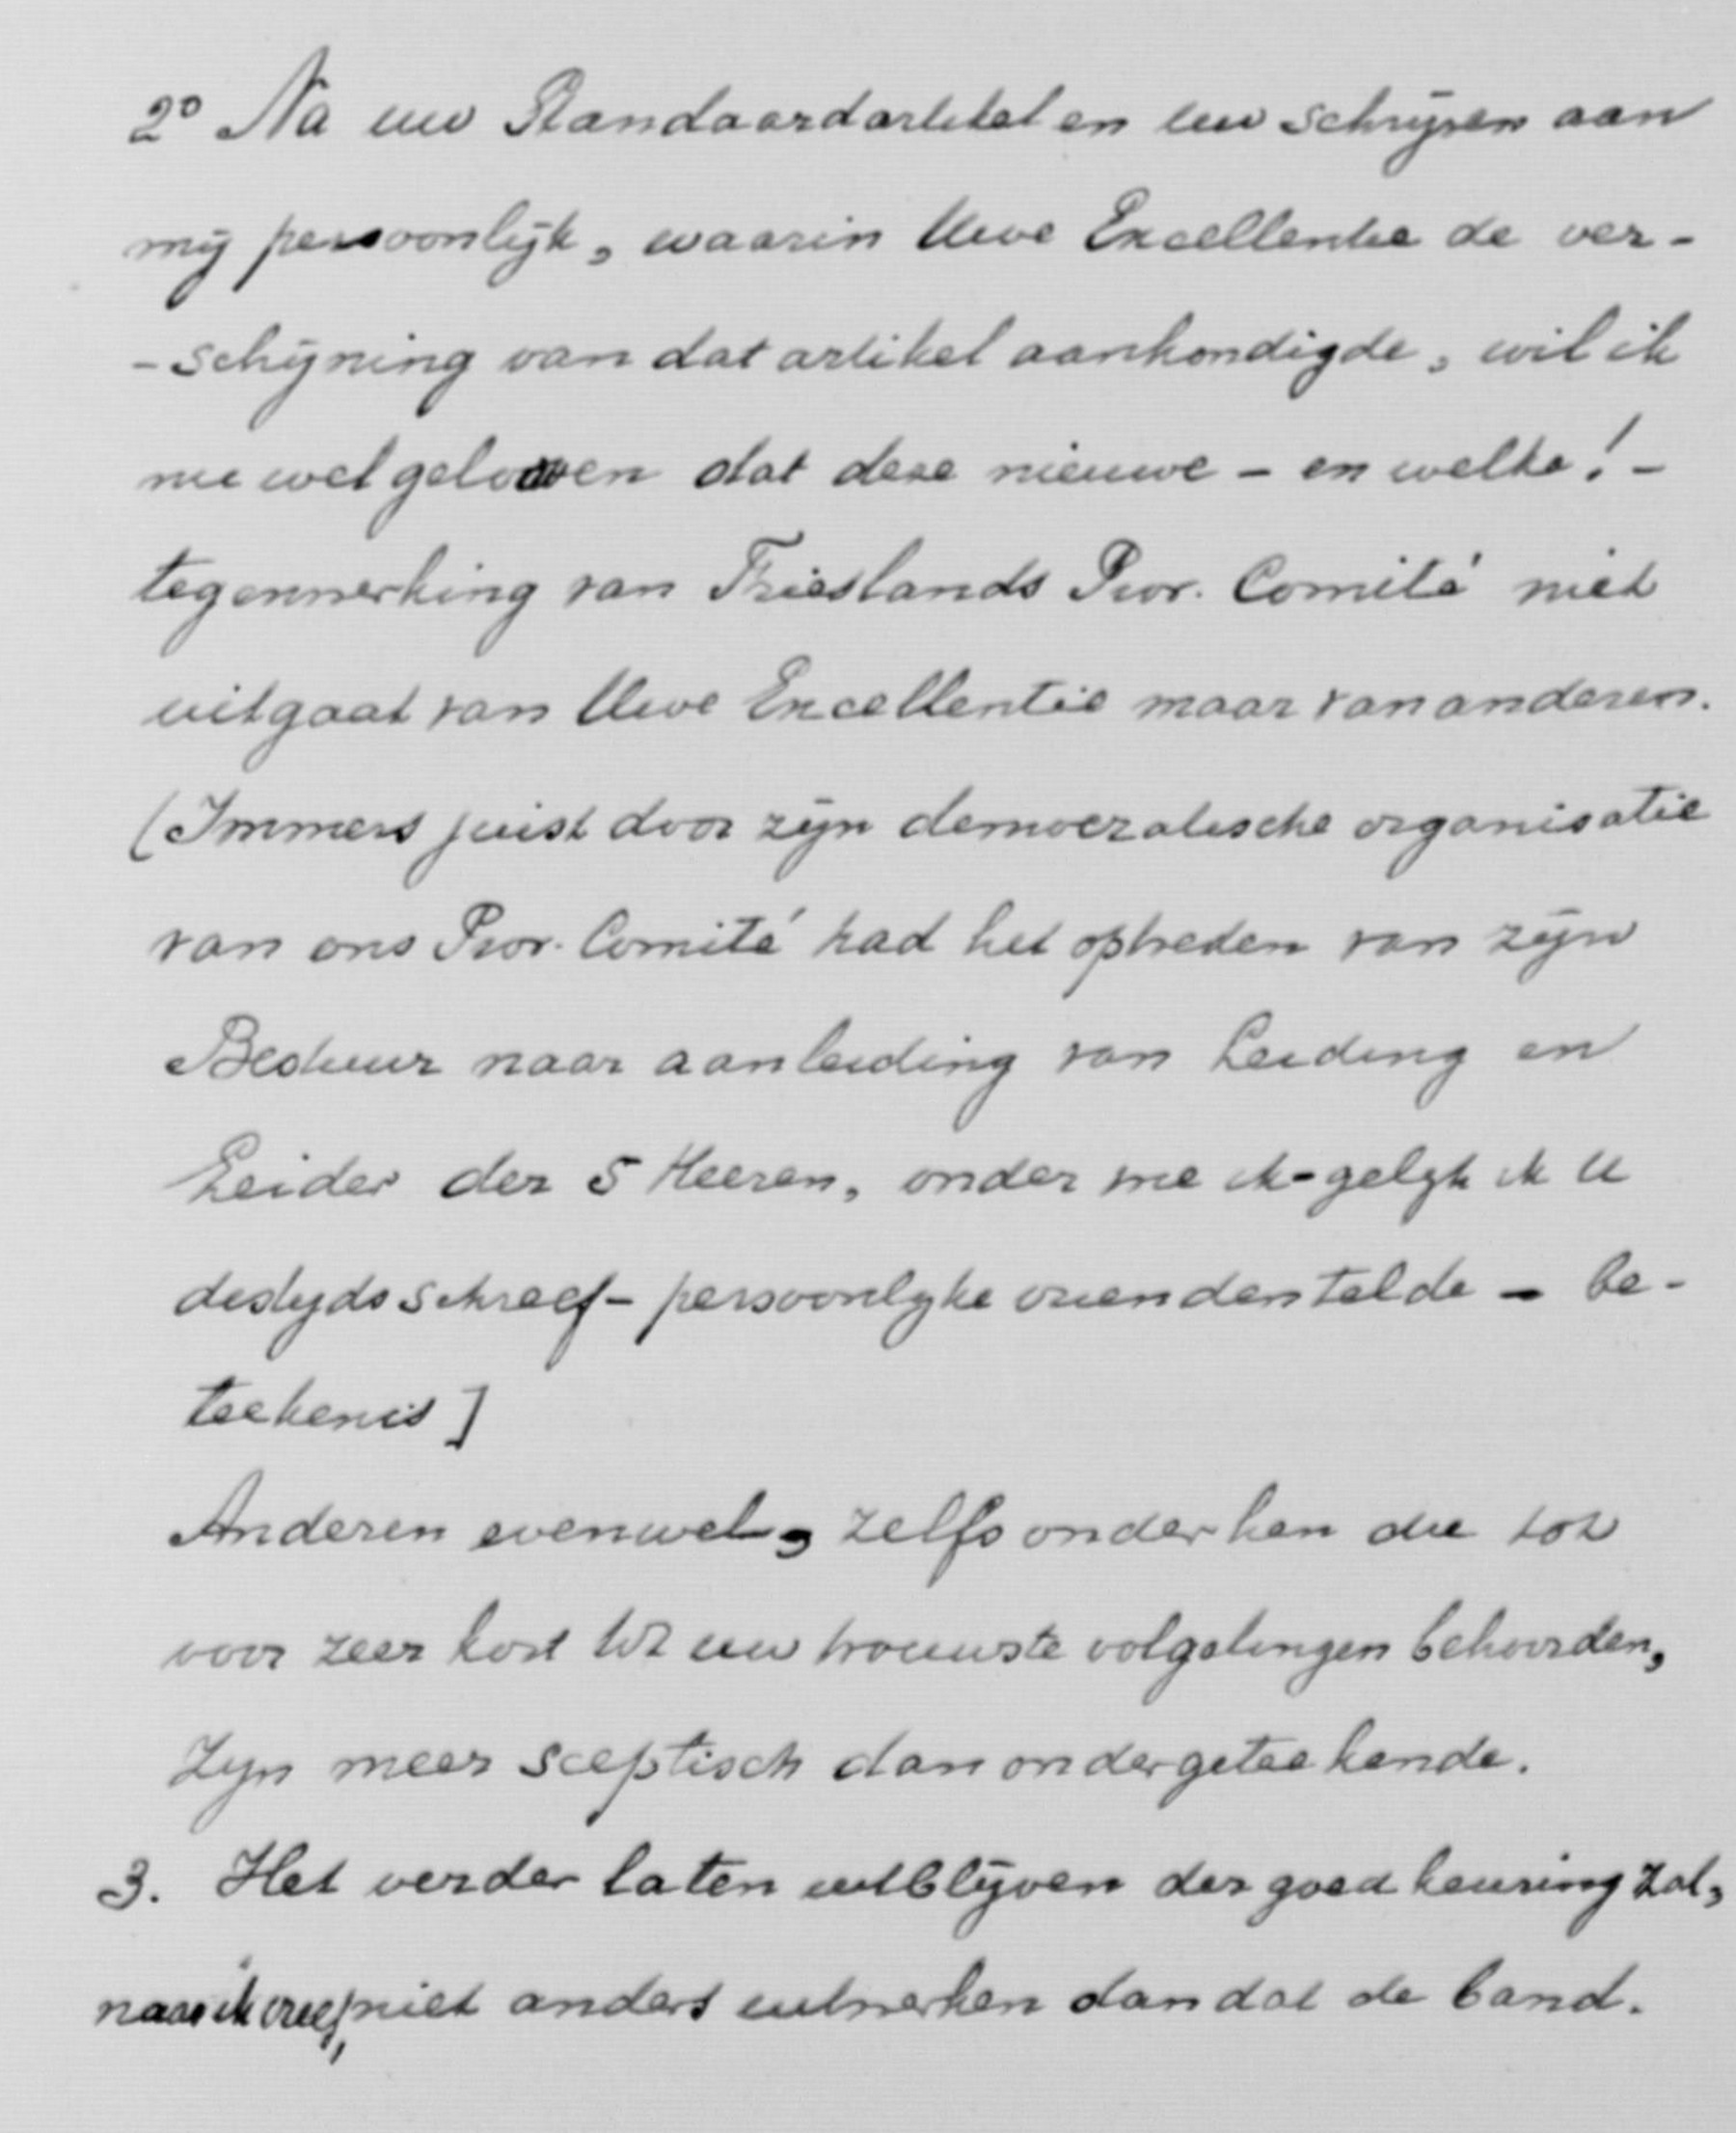 2° Na uw Standaardartikel en uw schrijven aan
mij persoonlijk, waarin Uwe Excellentie de ver-
-schijning van dat artikel aankondigde, wil ik
nu wel gelooven dat deze nieuwe - en welke! -
tegenwerking van Frieslands Prov. Comité niet
uitgaat van Uwe Excellentie maar van anderen.
(Immers juist door zijn democratische organisatie
van ons Prov. Comité had het optreden van zijn
Bestuur naar aanleiding van Leiding en
Leider der 5 Heeren, onder wie ik - gelijk ik U
destijds schreef - persoonlijke vrienden telde - be-
teekenis]
Anderen evenwel, zelfs onder hen die tot
voor zeer kort tot uw trouwste volgelingen behoorden,
zijn meer sceptisch dan ondergeteekende.
3. Het verder laten uitblijven der goedkeuring zal,
naar ik vrees, niet anders uitwerken dan dat de band.